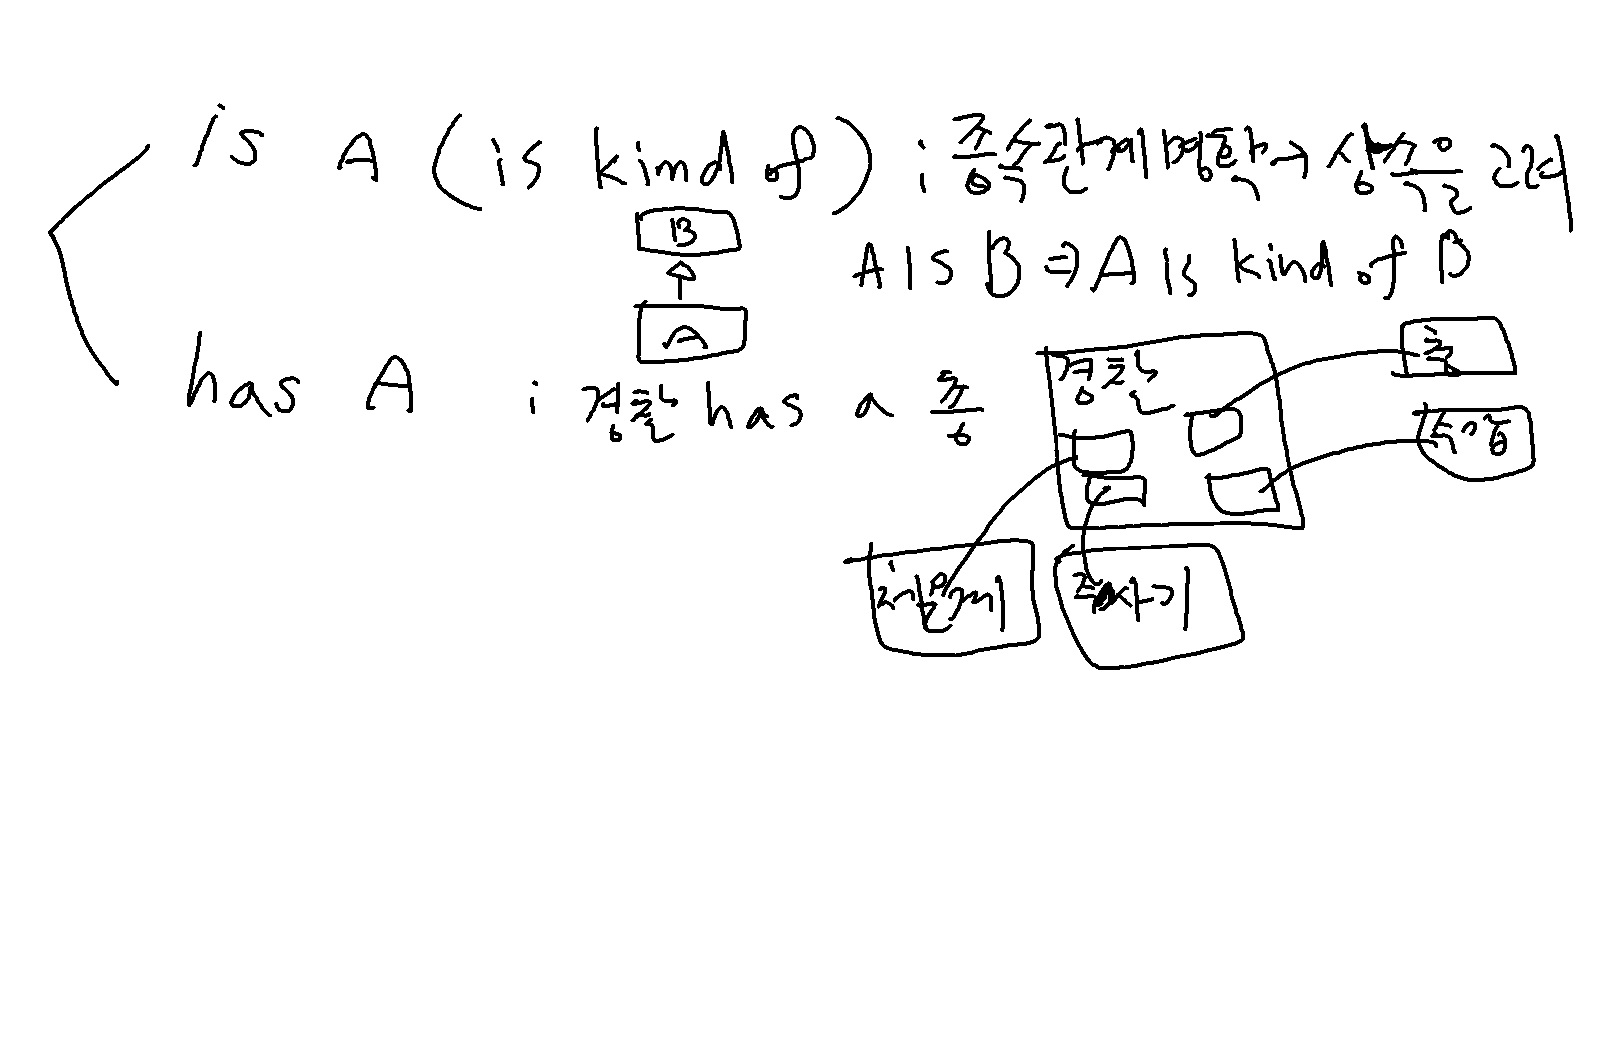 is A (is kind of) : 종속관계 명확→ 상속을 고려
B
A is B ⇒ A is kind of B
A
has A : 경찰 has a 총
경찰
총
수갑